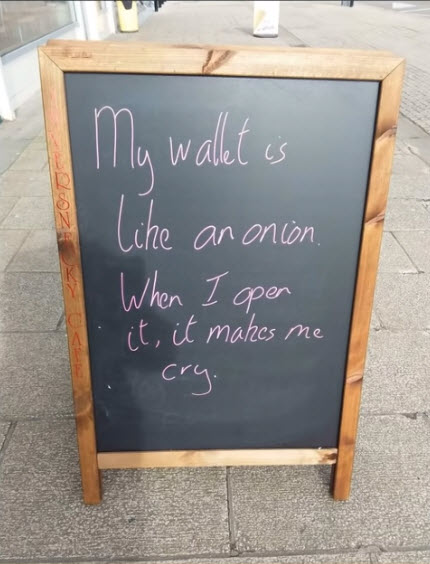 My wallet is
like an onion.
When I open
it, it makes me
cry.
KY CAFE